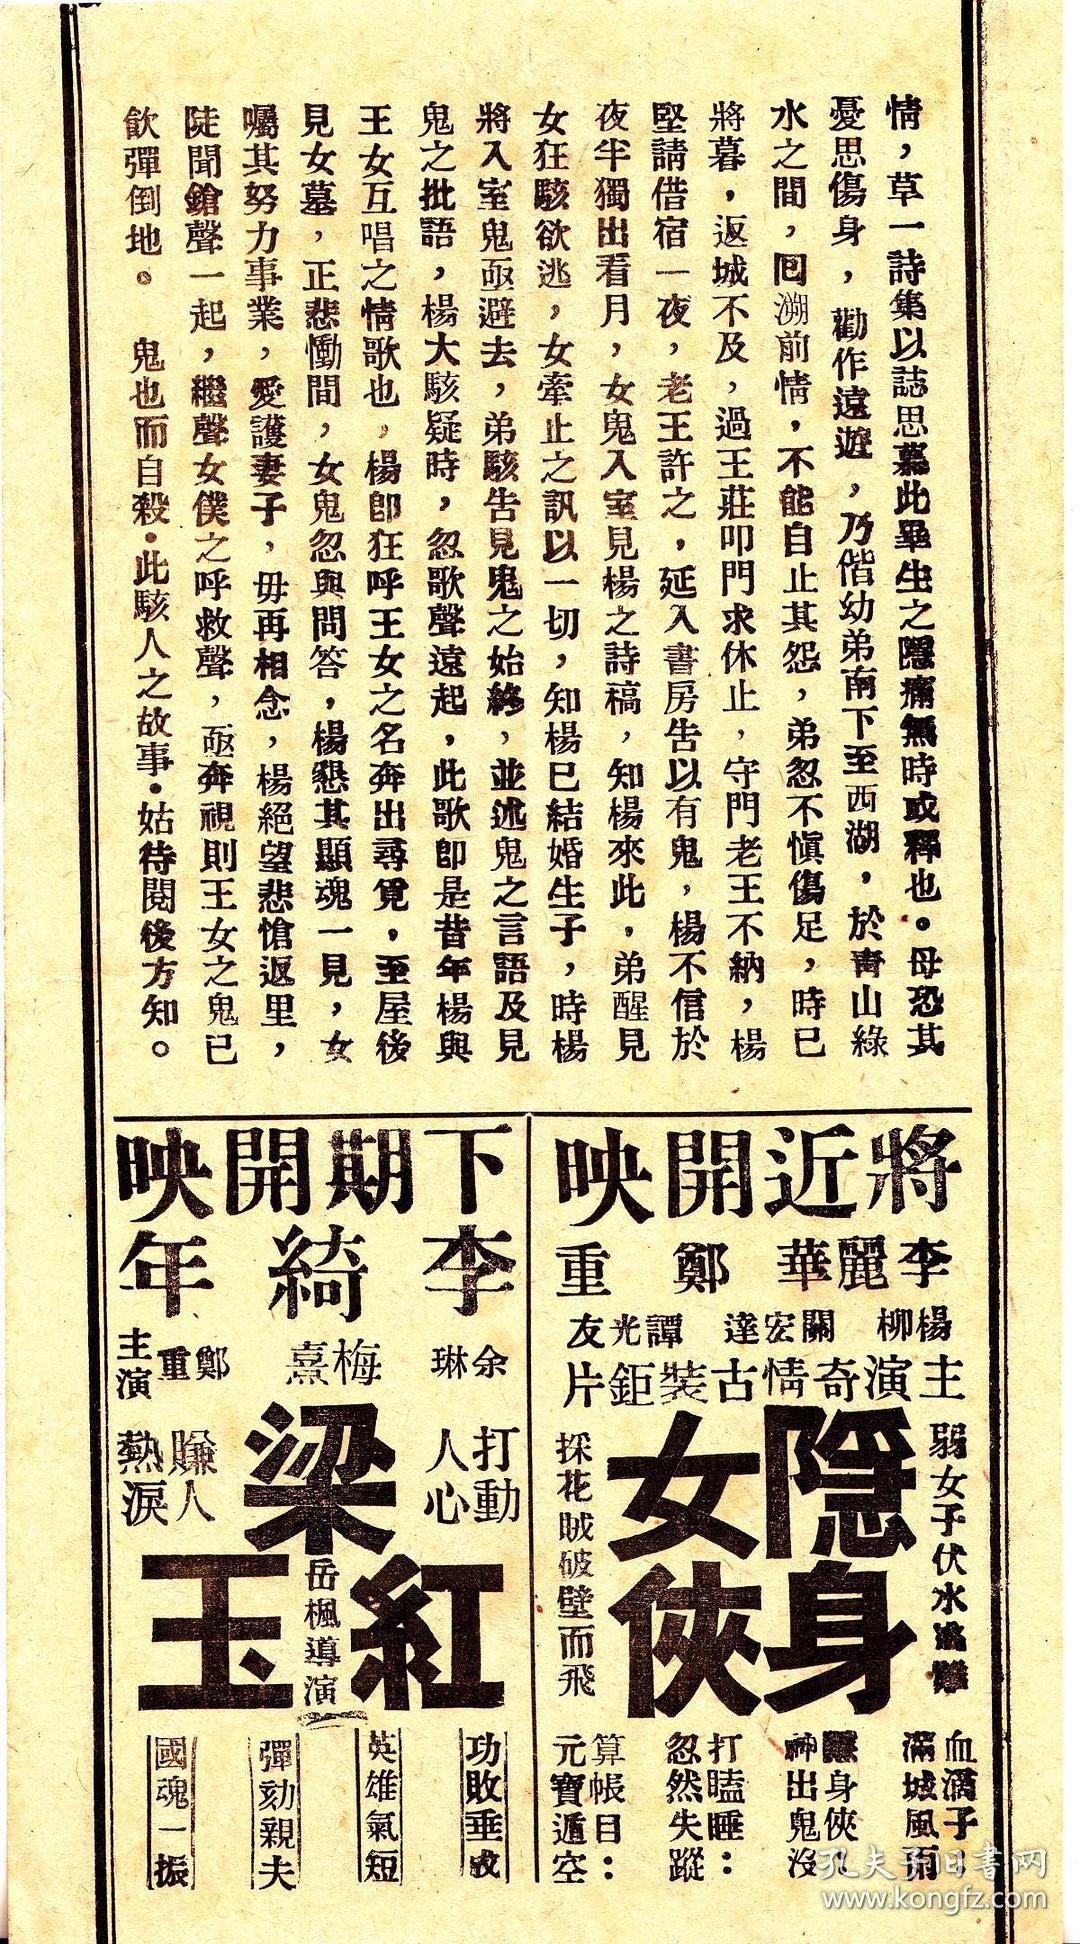 情，草一詩集以誌思慕此畢生之隱痛無時或釋也。母恐其
憂思傷身，勸作遠遊，乃偕幼弟南下至西湖，於靑山綠
水之間，回溯前情，不能自止其怨，弟忽不愼傷足，時已
將暮，返城不及，過王莊叩門求休止，守門老王不納，楊
堅請借宿一夜，老王許之，延入書房告以有鬼，楊不信於
夜半獨出看月，女鬼入室見楊之詩稿，知楊來此，弟醒見
女狂駭欲逃，女牽止之訊以一切，知楊已結婚生子，時楊
將入室鬼亟避去，弟駭告見鬼之始終，並述鬼之言語及見
鬼之批語，楊大駭疑時，忽歌聲遠起，此歌卽是昔年楊與
王女互唱之情歌也，楊卽狂呼王女之名奔出尋覓，至屋後
見女墓，正悲慟間，女鬼忽與問答，楊懇其顯魂一見，女
囑其努力事業，愛護妻子，毋再相念，楊絕望悲愴返里，
陡聞鎗聲一起，繼聲女僕之呼救聲，亟奔視則王女之鬼已
飮彈倒地。　鬼也而自殺·此駭人之故事·姑待閱後方知。
將近開映
李麗華　鄭重
楊柳　關宏達　譚光友
主演奇情古裝鉅片
隱身
女俠
弱女子伏水
採花賊破壁而飛
血滴子：
滿城風雨
隱身俠：
神出鬼沒
打瞌睡：
忽然失蹤
算帳目：
元寶遁空
下期開映
李綺年
余琳　梅熹　鄭重　主演
打動人心
梁
紅玉
賺人熱淚
岳楓導演
功敗垂成
英雄氣短
彈劾親夫
國魂一振
孔夫子旧書网
www.kongfz.com